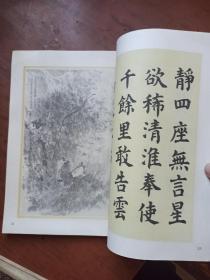 靜四座無言星
欲稀清淮奉使
千餘里敢告雲